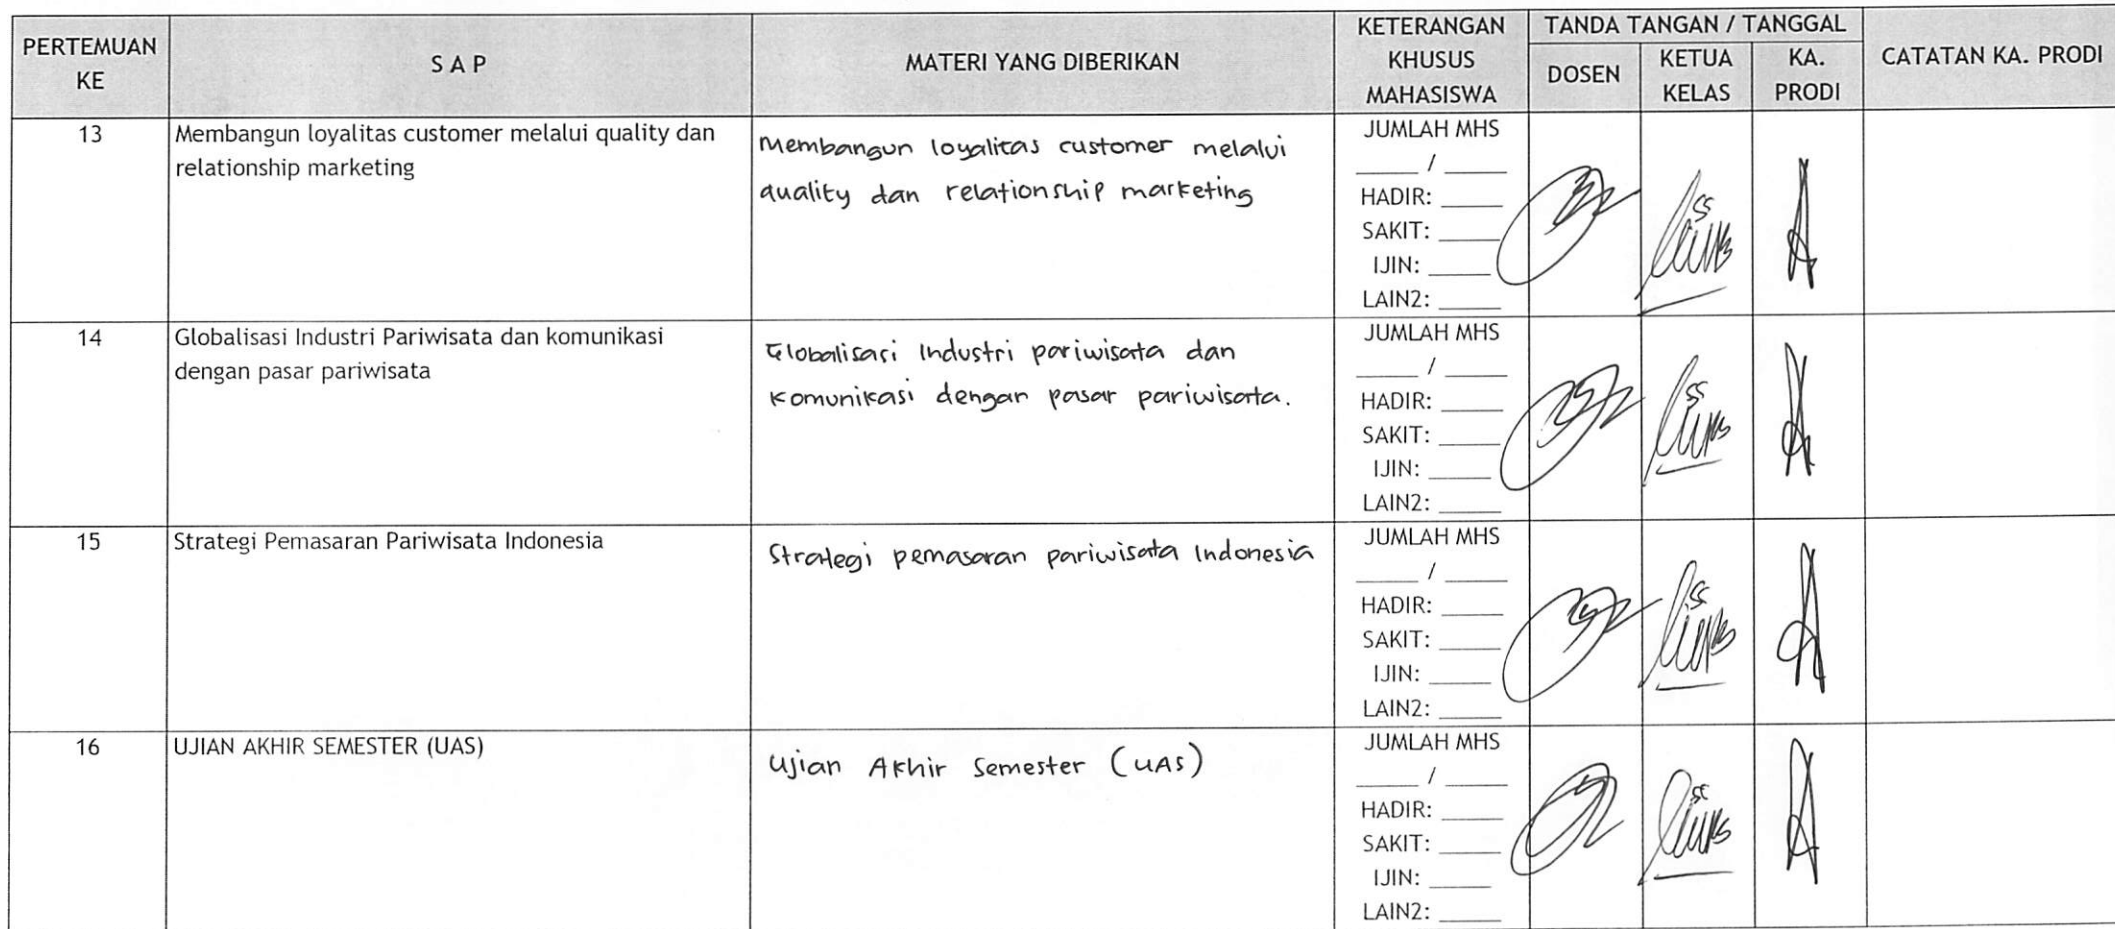 PERTEMUAN
KE
S A P
MATERI YANG DIBERIKAN
KETERANGAN
KHUSUS
MAHASISWA
TANDA TANGAN / TANGGAL
DOSEN
KETUA
KELAS
KA.
PRODI
CATATAN KA. PRODI
13
Membangun loyalitas customer melalui quality dan
relationship marketing
Membangun loyalitas customer melalui
quality dan relationship marketing
JUMLAH MHS
_____ / _____
HADIR: _____
SAKIT: _____
IJIN: _____
LAIN2: _____
14
Globalisasi Industri Pariwisata dan komunikasi
dengan pasar pariwisata
Globalisasi Industri pariwisata dan
komunikasi dengan pasar pariwisata.
JUMLAH MHS
_____ / _____
HADIR: _____
SAKIT: _____
IJIN: _____
LAIN2: _____
15
Strategi Pemasaran Pariwisata Indonesia
Strategi pemasaran pariwisata Indonesia
JUMLAH MHS
_____ / _____
HADIR: _____
SAKIT: _____
IJIN: _____
LAIN2: _____
16
UJIAN AKHIR SEMESTER (UAS)
Ujian Akhir Semester (UAS)
JUMLAH MHS
_____ / _____
HADIR: _____
SAKIT: _____
IJIN: _____
LAIN2: _____